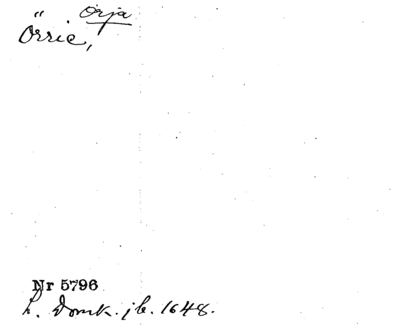 " Örja
Örrie,
Nr 5796
L. Domk. jb. 1648.